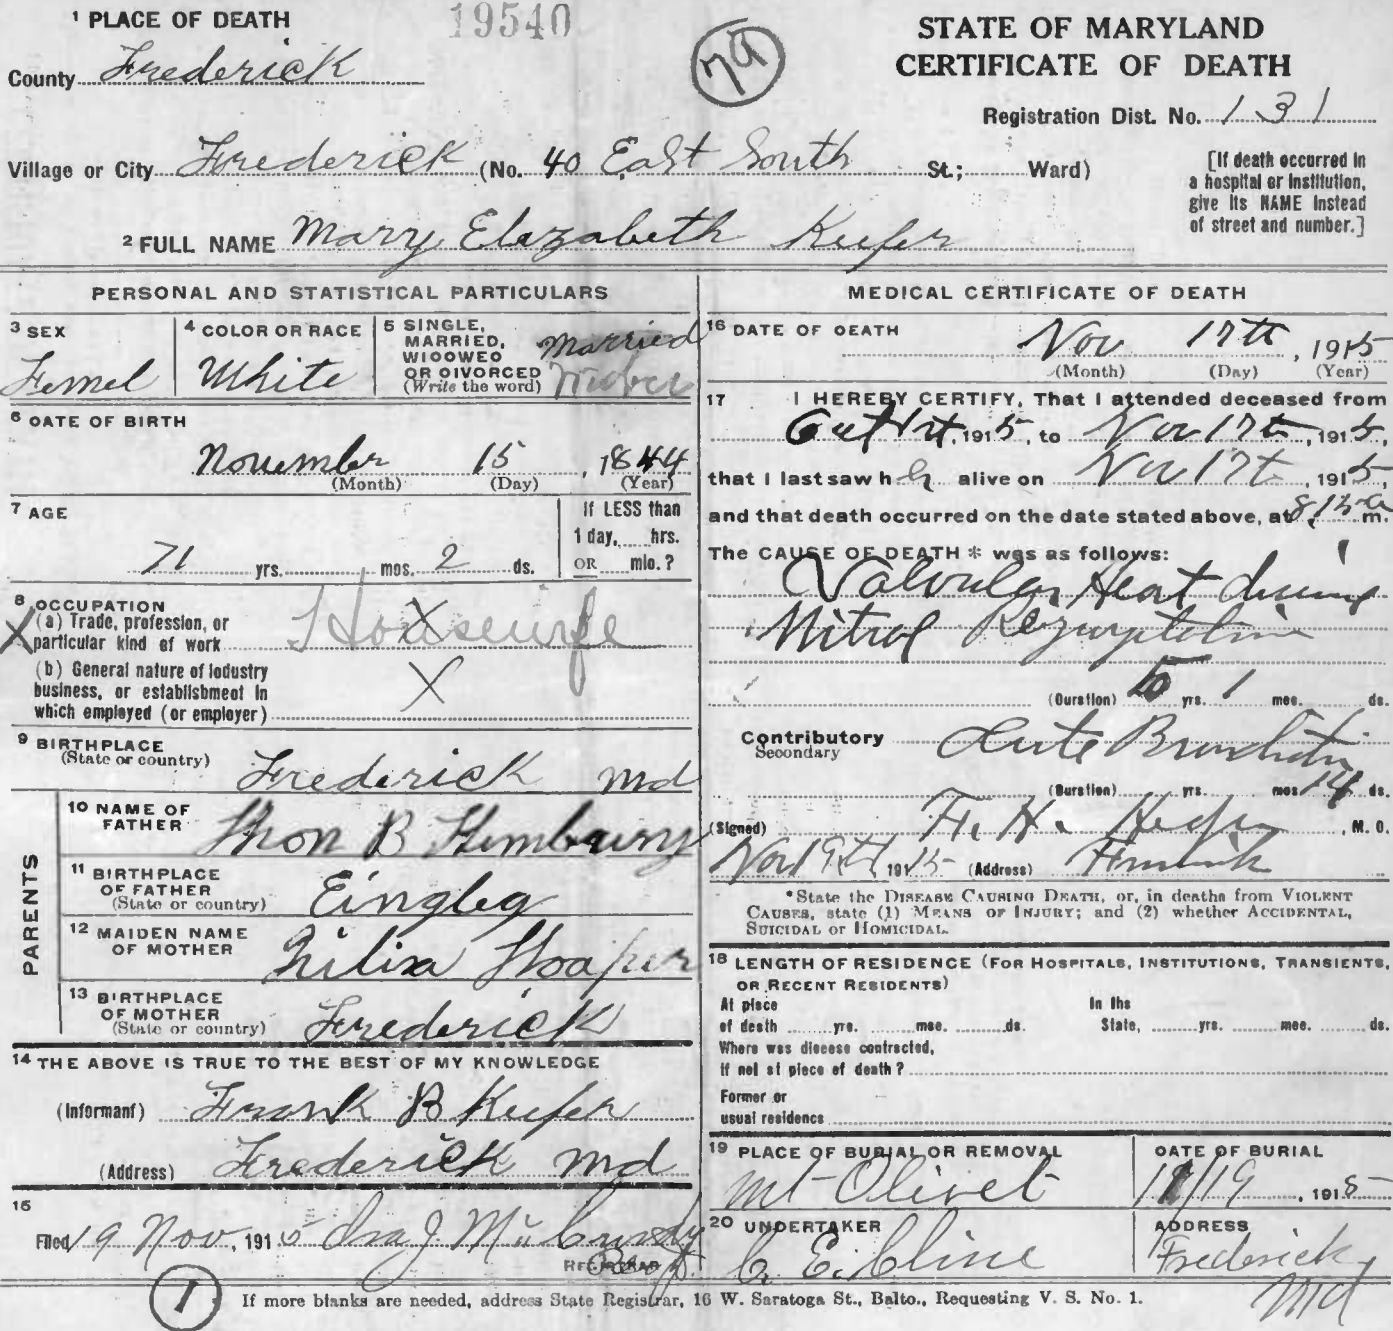 1 PLACE OF DEATH
19540
79
STATE OF MARYLAND
CERTIFICATE OF DEATH
County Frederick
Registration Dist. No. 131
Village or City Frederick (No. 40 East South St.; Ward)
[If death occurred in
a hospital or institution,
give its NAME instead
of street and number.]
2 FULL NAME Mary Elezabeth Keefer
PERSONAL AND STATISTICAL PARTICULARS
3 SEX
Femel
4 COLOR OR RACE
White
5 SINGLE,
MARRIED,
WIDOWED
OR DIVORCED
(Write the word)
Married
6 DATE OF BIRTH
November 15, 1844
(Month) (Day) (Year)
7 AGE
71 yrs. mos. 2 ds.
If LESS than
1 day, hrs.
OR min.?
8 OCCUPATION
(a) Trade, profession, or
particular kind of work
Housewife
X
(b) General nature of industry
business, or establishment in
which employed (or employer)
X
9 BIRTHPLACE
(State or country)
Frederick Md
PARENTS
10 NAME OF
FATHER
B
11 BIRTHPLACE
OF FATHER
(State or country)
Eingleg
12 MAIDEN NAME
OF MOTHER
13 BIRTHPLACE
OF MOTHER
(State or country)
Frederick
14 THE ABOVE IS TRUE TO THE BEST OF MY KNOWLEDGE
(Informant) Frank B Keefer
(Address) Frederick Md
15
Filed 19 Nov, 1915 Ira J. McCurdy
REGISTRAR
MEDICAL CERTIFICATE OF DEATH
16 DATE OF DEATH
Nov 17th, 1915
(Month) (Day) (Year)
17 I HEREBY CERTIFY, That I attended deceased from
1915, to Nov 17th, 1915,
that I last saw her alive on Nov 17th, 1915,
and that death occurred on the date stated above, at 8.15 a m.
The CAUSE OF DEATH * was as follows:
Valvular Heart disease
Mitral Regurgitation
(Duration) yrs. 1 mos. ds.
Contributory Acute Bronchitis
Secondary
(Duration) yrs. mos. 14 ds.
(Signed) M. D.
Nov 19th 1915 (Address) Frederick
*State the DISEASE CAUSING DEATH, or, in deaths from VIOLENT
CAUSES, state (1) MEANS OF INJURY; and (2) whether ACCIDENTAL,
SUICIDAL or HOMICIDAL.
18 LENGTH OF RESIDENCE (FOR HOSPITALS, INSTITUTIONS, TRANSIENTS,
OR RECENT RESIDENTS)
At place
of death yrs. mos. ds.
In the
State, yrs. mos. ds.
Where was disease contracted,
If not at place of death?
Former or
usual residence
19 PLACE OF BURIAL OR REMOVAL
Mt Olivet
DATE OF BURIAL
11/19, 1915
20 UNDERTAKER
C. E. Cline
ADDRESS
Frederick
Md
1
If more blanks are needed, address State Registrar, 16 W. Saratoga St., Balto., Requesting V. S. No. 1.